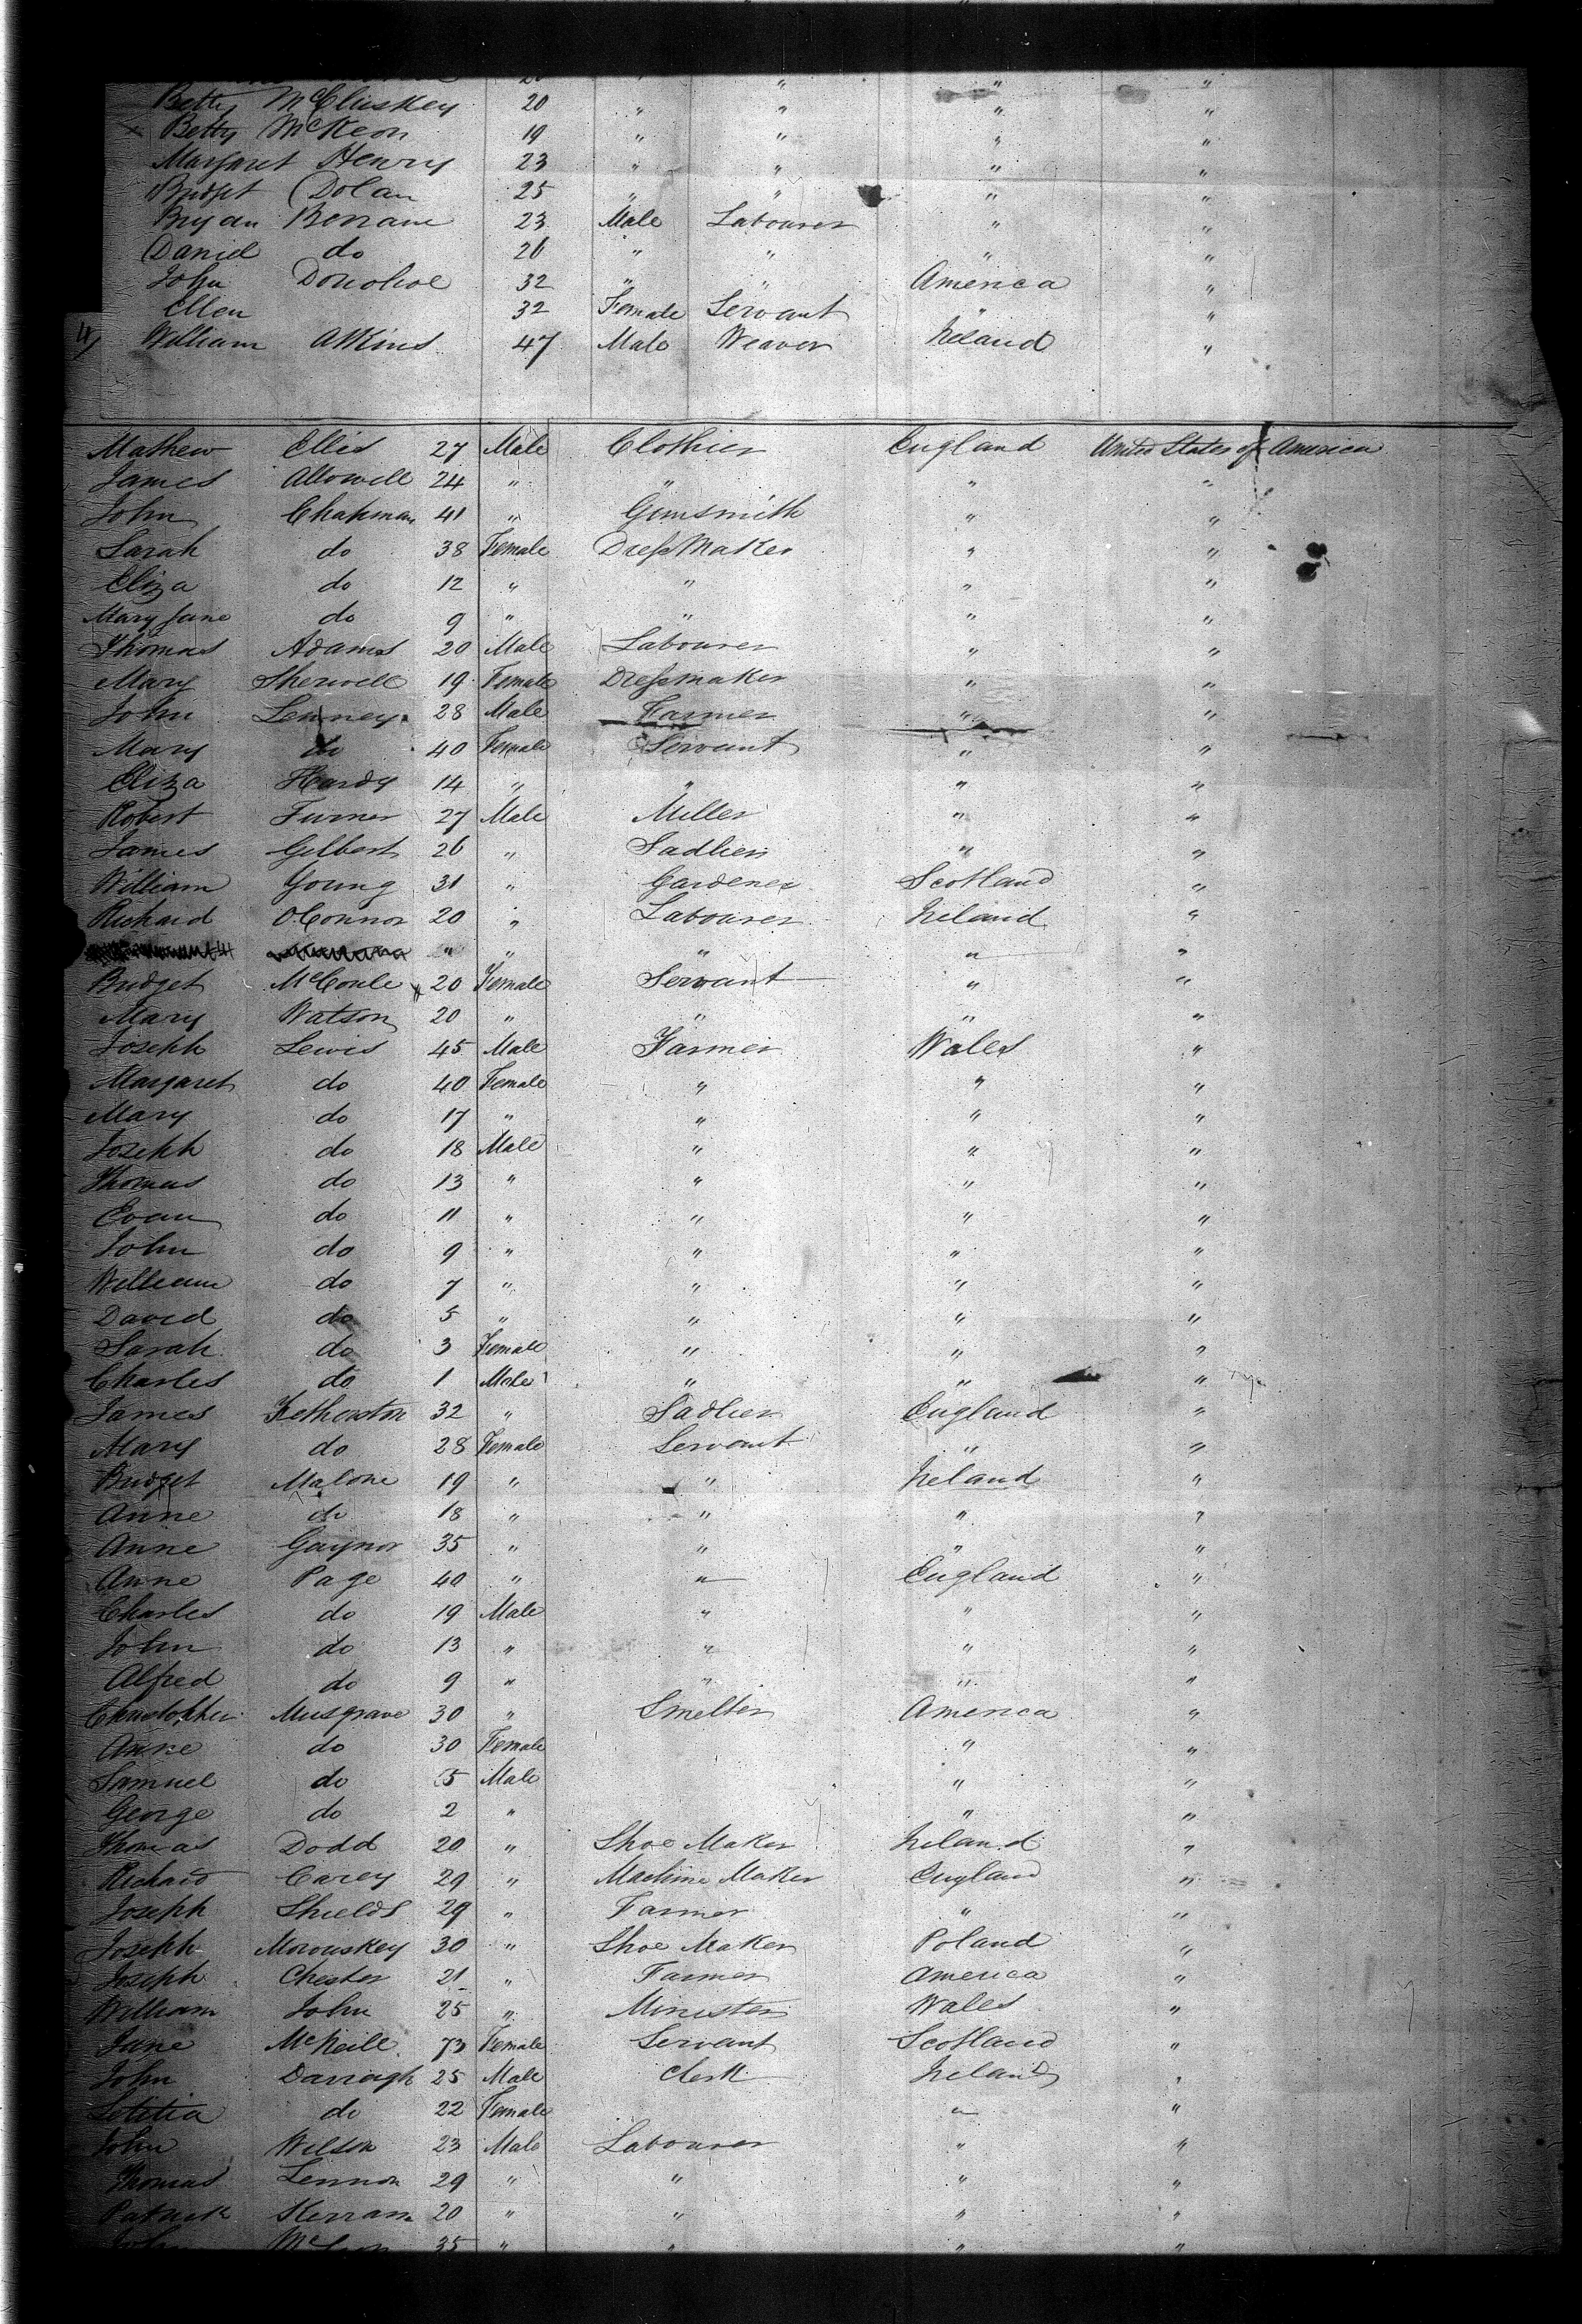 20 " " " "
Betty McCluskey 20 " " " "
Betty McKeon 19 " " " "
Margaret Henry 23 " " " "
Bridget Dolan 25 " " " "
Bryan 23 Male Labourer " "
Daniel do 26 " " " "
John Donohoe 32 " " America "
Ellen 32 Female Servant " "
William Atkins 47 Male Weaver Ireland "
Mathew Ellis 27 Male Clothier England United States of America
James Allowell 24 " " " "
John Chapman 41 " Gunsmith " "
Sarah do 38 Female Dress Maker " "
Eliza do 12 " " " "
Mary Jane do 9 " " " "
Thomas Adams 20 Male Labourer " "
Mary Sherwell 19 Female Dressmaker " "
John Lenney 28 Male Farmer " "
Mary do 40 Female Servant " "
Eliza Hardy 14 " " " "
Robert Turner 27 Male Miller " "
James Gilbert 26 " Sadlier " "
William Young 31 " Gardener Scotland "
Richard OConnor 20 " Labourer Ireland "
" " " " "
Bridget 20 Female Servant " "
Mary Watson 20 " " " "
Joseph Lewis 45 Male Farmer Wales "
Margaret do 40 Female " " "
Mary do 17 " " " "
Joseph do 18 Male " " "
Thomas do 13 " " " "
Evan do 11 " " " "
John do 9 " " " "
William do 7 " " " "
David do 5 " " " "
Sarah do 3 Female " " "
Charles do 1 Male " " "
James Fetherston 32 " Sadlier England "
Mary do 28 Female Servant " "
Bridget Malone 19 " " Ireland "
Anne do 18 " " " "
Anne Gaynor 35 " " " "
Anne Page 40 " " England "
Charles do 19 Male " " "
John do 13 " " " "
Alfred do 9 " " " "
Christopher Musgrave 30 " Smelter America "
Anne do 30 Female " "
Samuel do 5 Male " "
George do 2 " " "
Thomas Dodd 20 " Shoe Maker Ireland "
Richard Carey 29 " Machine Maker England "
Joseph Shields 29 " Farmer " "
Joseph Morouskey 30 " Shoe Maker Poland "
Joseph Chester 21 " Farmer America "
William John 25 " Minister Wales "
Jane McNeill 73 Female Servant Scotland "
John Darragh 25 Male Clerk Ireland "
Letitia do 22 Female " "
John Wilson 23 Male Labourer " "
Thomas Lennon 29 " " " "
Patrick 20 " " " "
John 35 " " " "